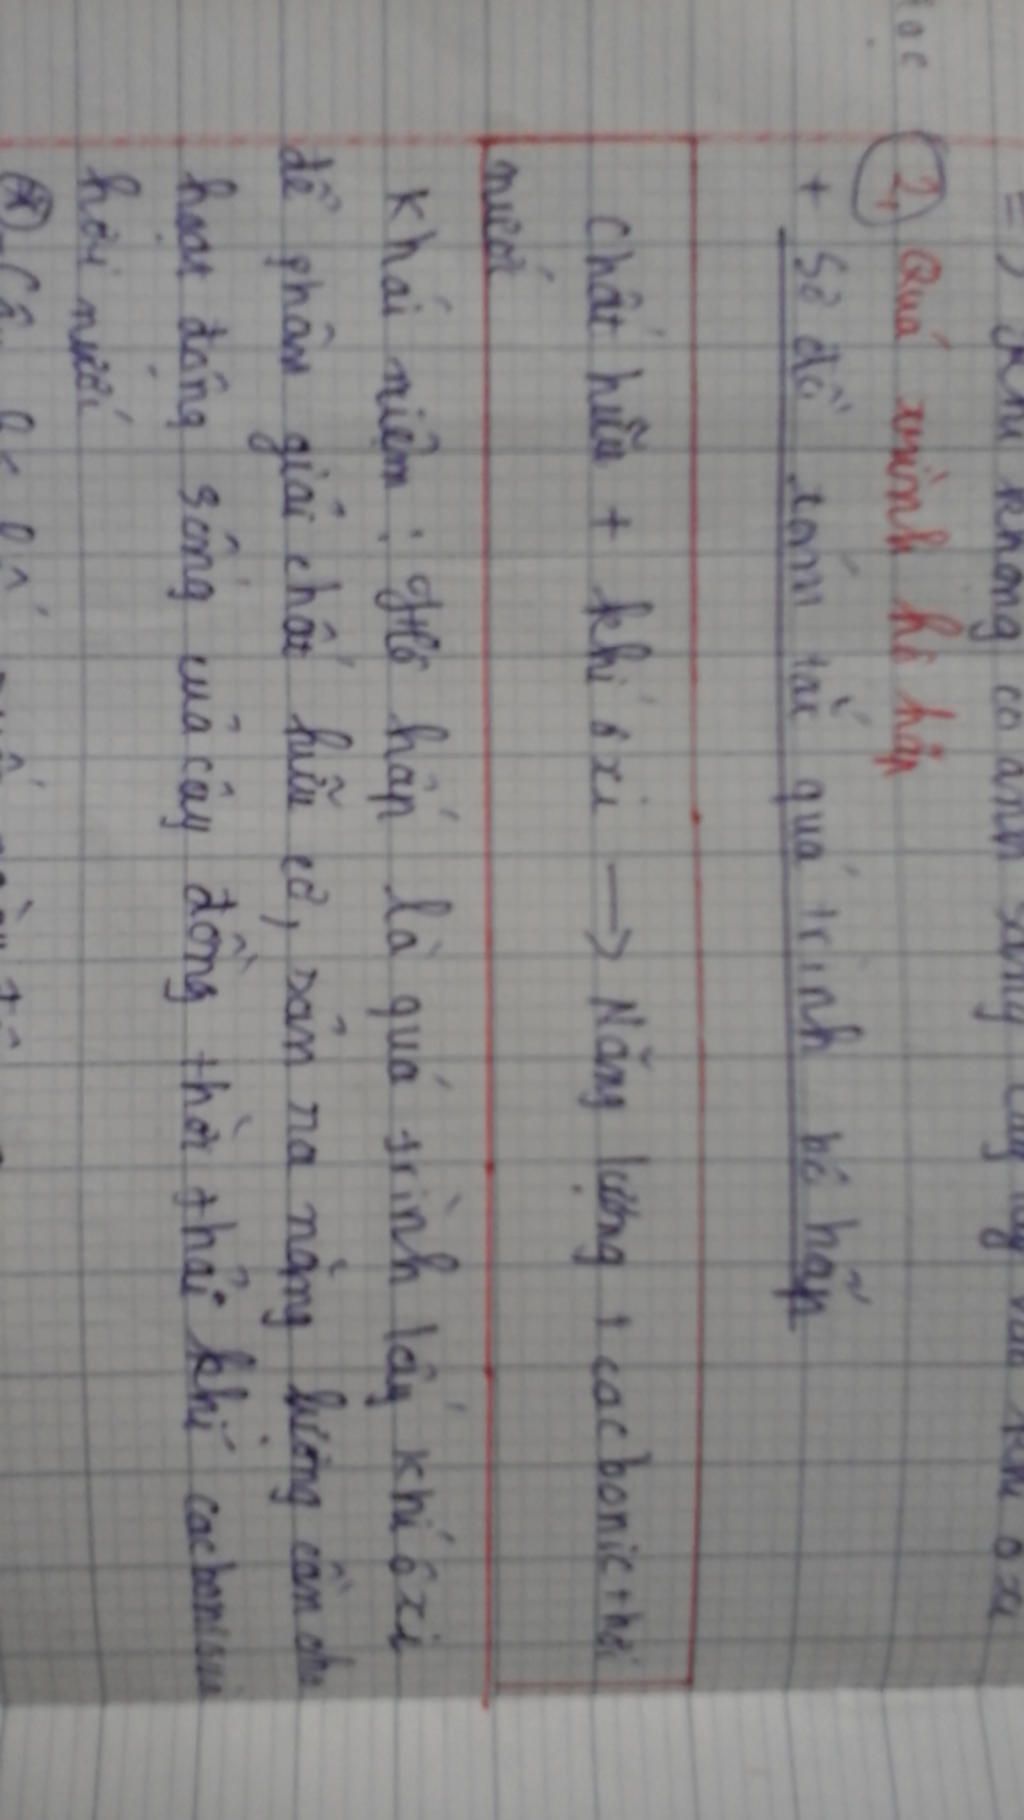 =) khi không có ánh sáng cây lấy vào khí oxi
2, Quá trình hô hấp
+ Sơ đồ tóm tắt quá trình hô hấp
chất hữu + khí ôxi → Năng lượng + cacbonic + hơi
nước
Khái niệm : Hô hấp là quá trình lấy khí ôxi
để phân giải chất hữu cơ, sản ra năng lượng cần cho
hoạt động sống của cây đồng thời thải khí cacbonic và
hơi nước